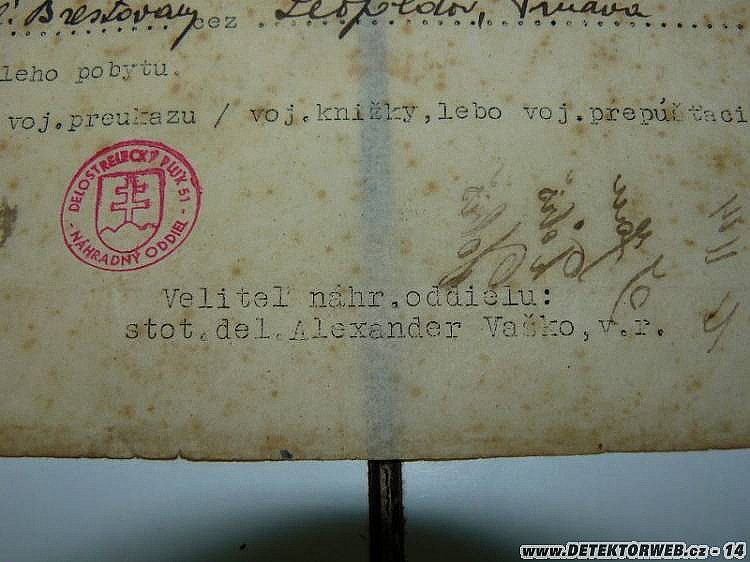 Brestovany cez Leopoldov, Trnava
leho pobytu.
voj.preukazu / voj.knižky,lebo voj.prepúšťaci
DELOSTRELECKÝ PLUK 51
- NÁHRADNÝ ODDIEL -
Veliteľ náhr.oddielu:
stot.del.Alexander Vaško,v.r.
www.DETEKTORWEB.cz - 14